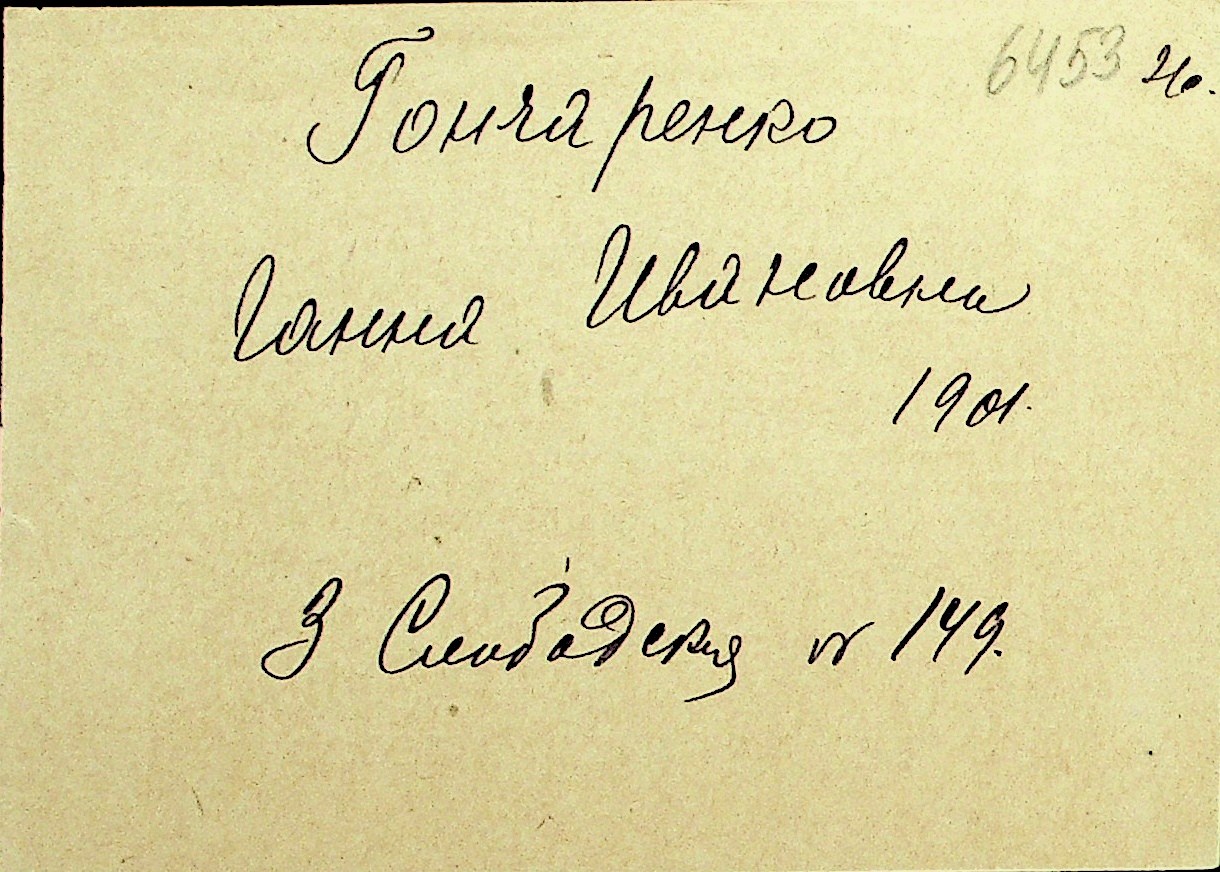 6453
Гончаренко
Ганна Ивановна
1901.
3 Слободская № 149.